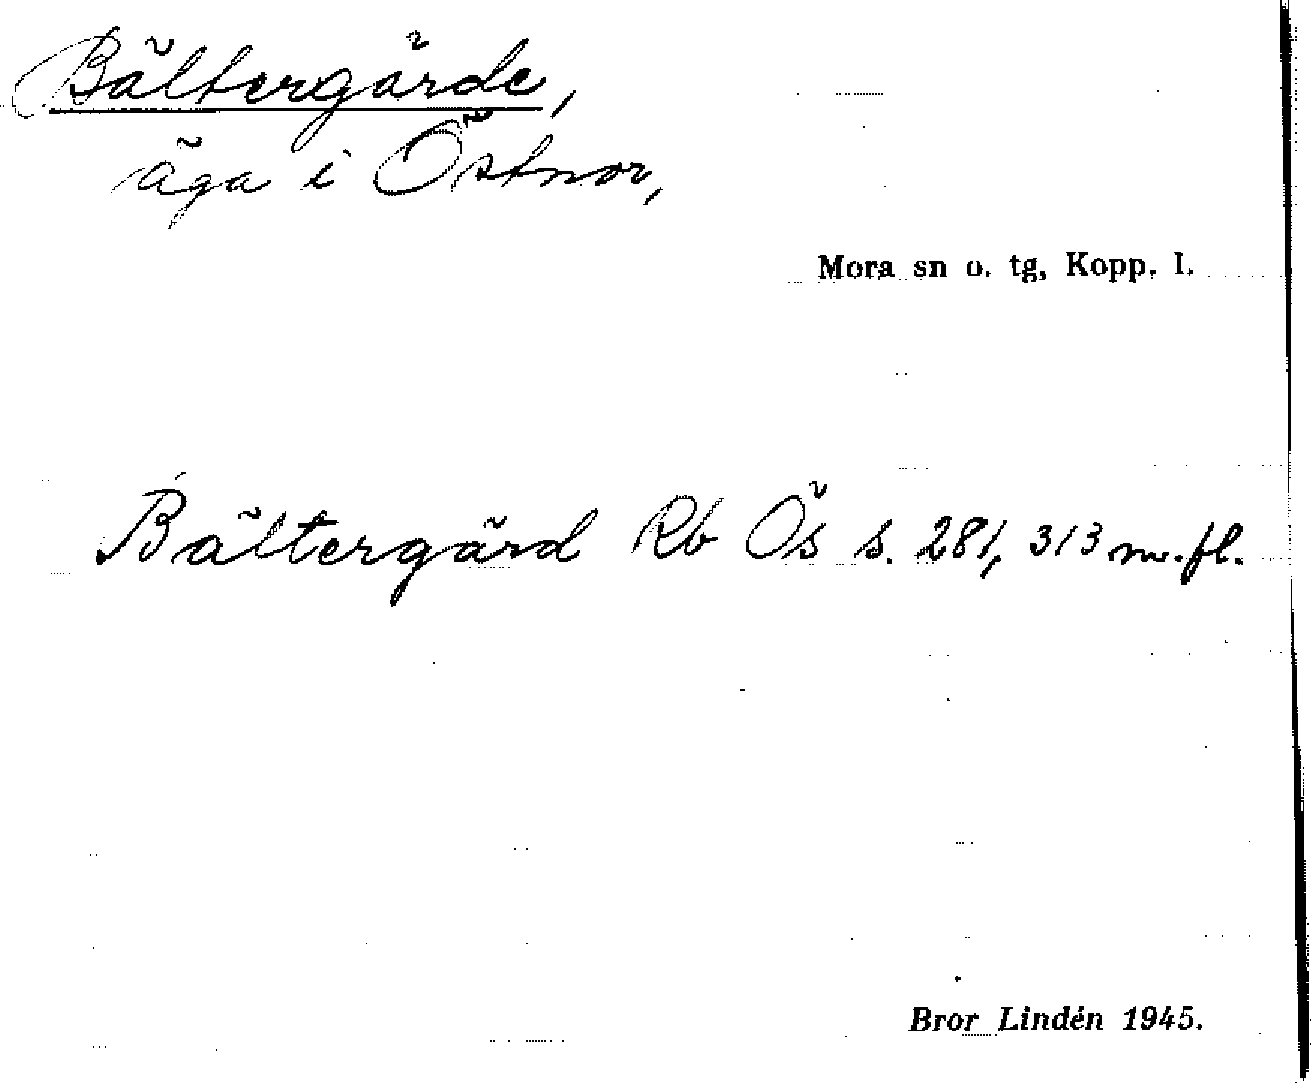 Bältergärde,
äga i Östnor,
Mora sn o. tg, Kopp. l.
Bältergärd Rb Ös s. 281, 313 m. fl.
Bror Lindén 1945.